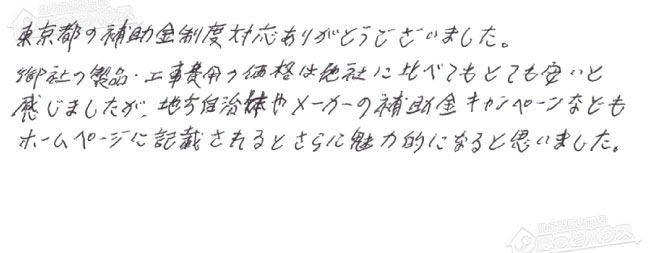 東京都の補助金制度対応ありがとうございました。
御社の製品・工事費用の価格は他社に比べてもとても安いと
感じましたが、地方自治体やメーカーの補助金キャンペーンなども
ホームページに記載されるとさらに魅力的になると思いました。